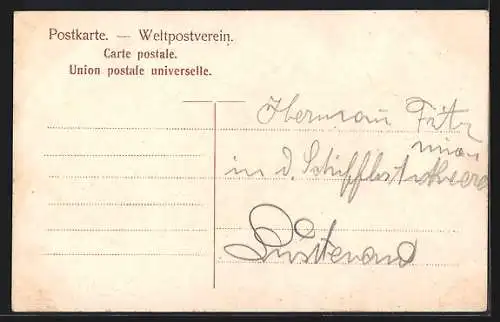 Postkarte. — Weltpostverein.
Carte postale.
Union postale universelle.
Herman Fritz
in d. Schifflistickerei
Lustenau